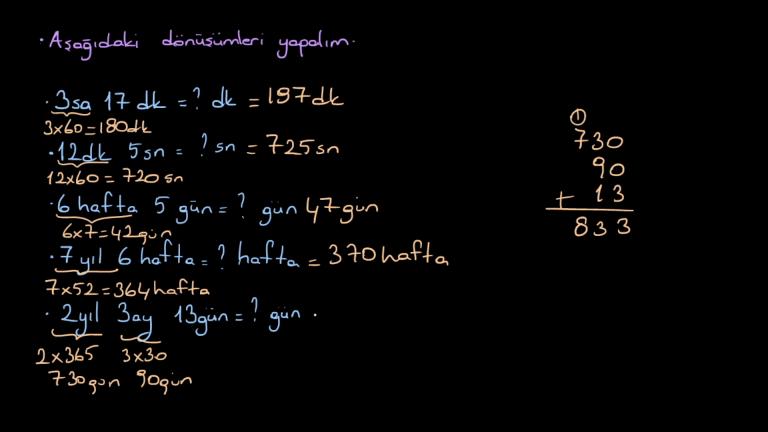 · Aşağıdaki dönüşümleri yapalım.
· 3sa 17 dk = ? dk = 197dk
3x60=180dk
· 12dk 5sn = ? sn = 725sn
12x60 = 720 sn
· 6 hafta 5 gün = ? gün 47gün
6x7=42gün
· 7 yıl 6 hafta = ? hafta = 370hafta
7x52=364hafta
· 2yıl 3ay 13gün = ? gün .
2x365 3x30
730gün 90gün
1
730
90
+ 13
833